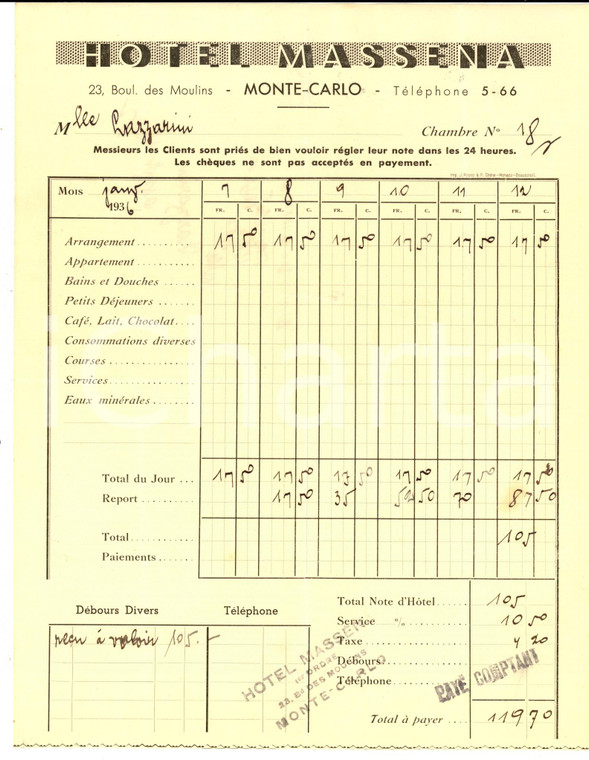 HOTEL MASSENA
23, Boul. des Moulins - MONTE-CARLO - Téléphone 5-66
Mlle Lazzarini Chambre No 18
Messieurs les Clients sont priés de bien vouloir régler leur note dans les 24 heures.
Les chèques ne sont pas acceptés en payement.
Mois janv. 1936 7 8 9 10 11 12
FR. C. FR. C. FR. C. FR. C. FR. C. FR. C.
Arrangement 17 50 17 50 17 50 17 50 17 50 17 50
Appartement
Bains et Douches
Petits Déjeuners
Café, Lait, Chocolat
Consommations diverses
Courses
Services
Eaux minérales
Total du Jour 17 50 17 50 17 50 17 50 17 50 17 50
Report 17 50 35 52 50 70 87 50
Total 105
Paiements
Débours Divers Téléphone
reçu à valoir 105.-
Total Note d'Hôtel 105
Service % 10 50
Taxe 4 20
Débours
Téléphone
Total à payer 119 70
HOTEL MASSENA
1er ORDRE
23, Bd DES MOULINS
MONTE-CARLO
PAYÉ COMPTANT